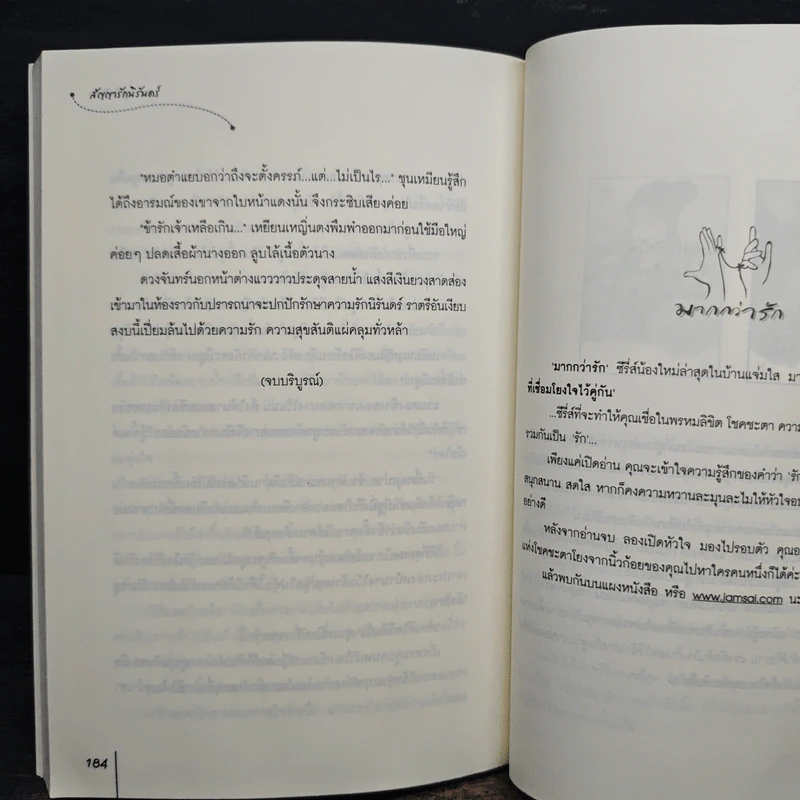 สัญญารักนิรันดร์
"หมอตำแยบอกว่าถึงจะตั้งครรภ์...แต่...ไม่เป็นไร..." ชุนเหมียนรู้สึก
ได้ถึงอารมณ์ของเขาจากใบหน้าแดงนั้น จึงกระซิบเสียงค่อย
"ข้ารักเจ้าเหลือเกิน..." เหยียนเหญิ่นตงพึมพำออกมาก่อนใช้มือใหญ่
ค่อยๆ ปลดเสื้อผ้านางออก ลูบไล้เนื้อตัวนาง
ดวงจันทร์นอกหน้าต่างแวววาวประดุจสายน้ำ แสงสีเงินยวงสาดส่อง
เข้ามาในห้องราวกับปรารถนาจะปกปักรักษาความรักนิรันดร์ ราตรีอันเงียบ
สงบนี้เปี่ยมล้นไปด้วยความรัก ความสุขสันติแผ่คลุมทั่วหล้า
(จบบริบูรณ์)
184
มากกว่ารัก
'มากกว่ารัก' ซีรี่ส์น้องใหม่ล่าสุดในบ้านแจ่มใส
ที่เชื่อมโยงใจไว้คู่กัน'
...ซีรี่ส์ที่จะทำให้คุณเชื่อในพรหมลิขิต โชคชะตา
รวมกันเป็น 'รัก'...
เพียงแค่เปิดอ่าน คุณจะเข้าใจความรู้สึกของคำว่า
สนุกสนาน สดใส หากก็คงความหวานละมุนละไมให้หัวใจ
อย่างดี
หลังจากอ่านจบ ลองเปิดหัวใจ มองไปรอบตัว
แห่งโชคชะตาโยงจากนิ้วก้อยของคุณไปหาใครคนหนึ่งก็ได้ค่ะ
แล้วพบกันบนแผงหนังสือ หรือ www.jamsai.com นะ